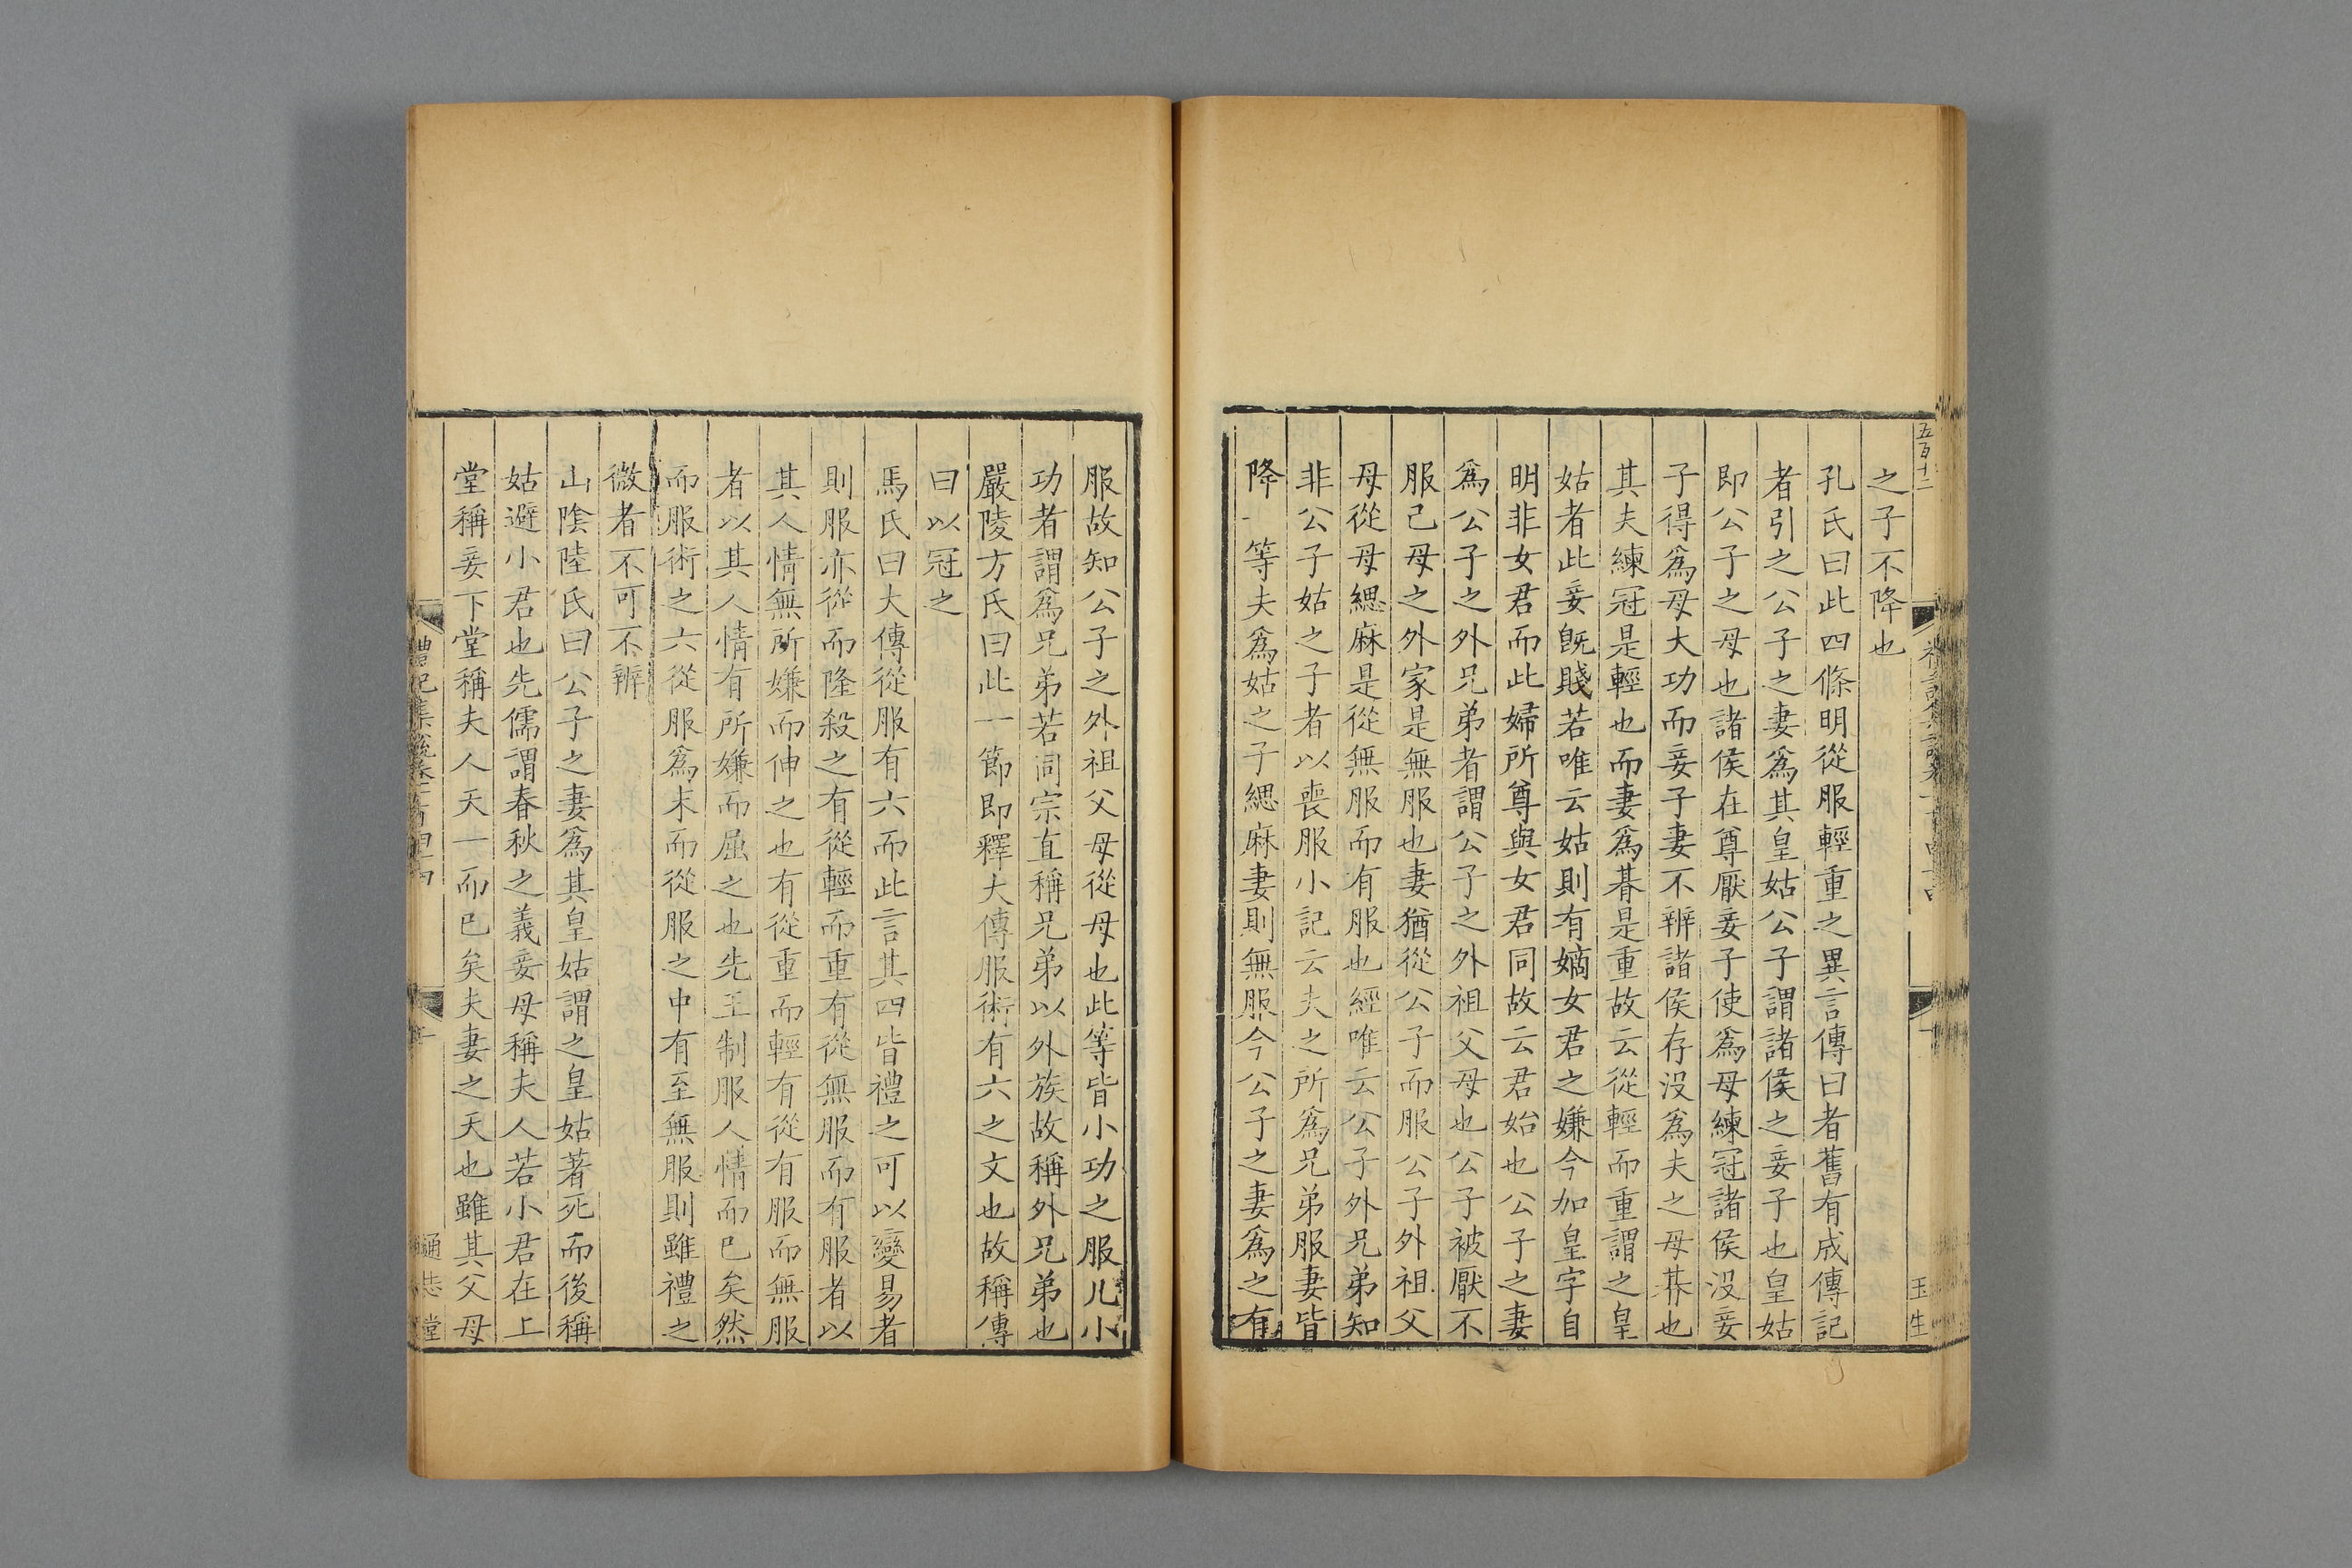 五百十二
之子不降也
孔氏曰此四條明從服輕重之異言傳曰者舊有成傳記
者引之公子之妻爲其皇姑公子謂諸侯之妾子也皇姑
即公子之母也諸侯在尊厭妾子使爲母練冠諸侯没妾
子得爲母大功而妾子妻不辨諸侯存没爲夫之母朞也
其夫練冠是輕也而妻爲朞是重故云從輕而重謂之皇
姑者此妾旣賤若唯云姑則有嫡女君之嫌今加皇字自
明非女君而此婦所尊與女君同故云君始也公子之妻
爲公子之外兄弟者謂公子之外祖父母也公子被厭不
服己母之外家是無服也妻猶從公子而服公子外祖父
母從母緦麻是從無服而有服也經唯云公子外兄弟知
非公子姑之子者以喪服小記云夫之所爲兄弟服妻皆
降一等夫爲姑之子緦麻妻則無服今公子之妻爲之有
玉生
服故知公子之外祖父母從母也此等皆小功之服凡小
功者謂爲兄弟若同宗直稱兄弟以外族故稱外兄弟也
嚴陵方氏曰此一節即釋大傳服術有六之文也故稱傳
曰以冠之
馬氏曰大傳從服有六而此言其四皆禮之可以變易者
則服亦從而隆殺之有從輕而重有從無服而有服者以
其人情無所嫌而伸之也有從重而輕有從有服而無服
者以其人情有所嫌而屈之也先王制服人情而已矣然
而服術之六從服爲末而從服之中有至無服則雖禮之
微者不可不辨
山陰陸氏曰公子之妻爲其皇姑謂之皇姑著死而後稱
姑避小君也先儒謂春秋之義妾母稱夫人若小君在上
堂稱妾下堂稱夫人天一而已矣夫妻之天也雖其父母
禮記集說卷一百四十四
通志堂